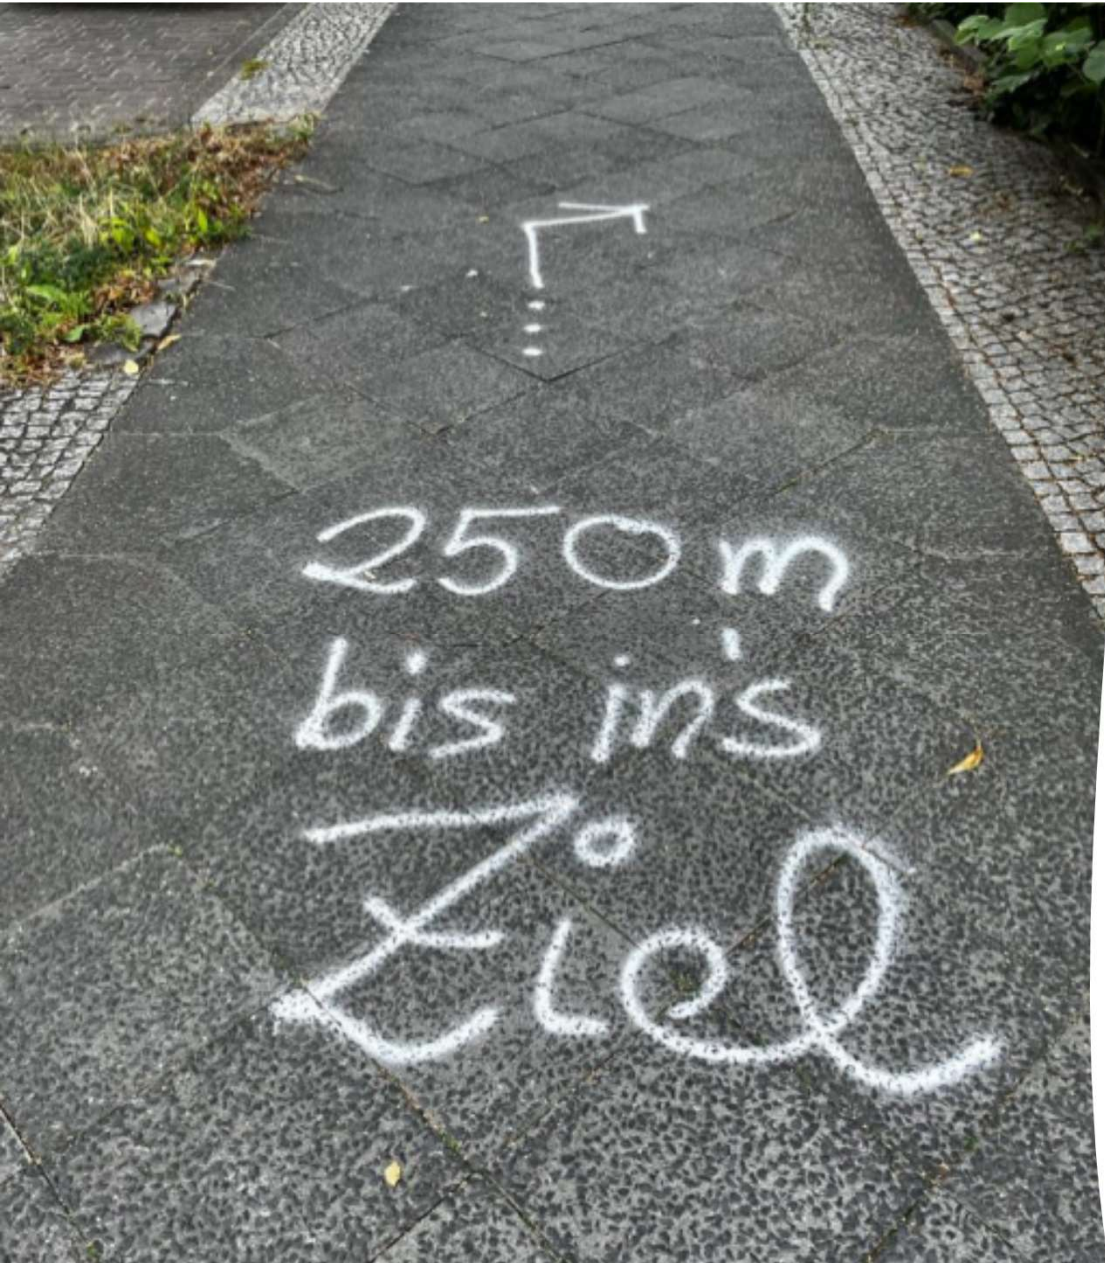 250 m
bis in's
Ziel